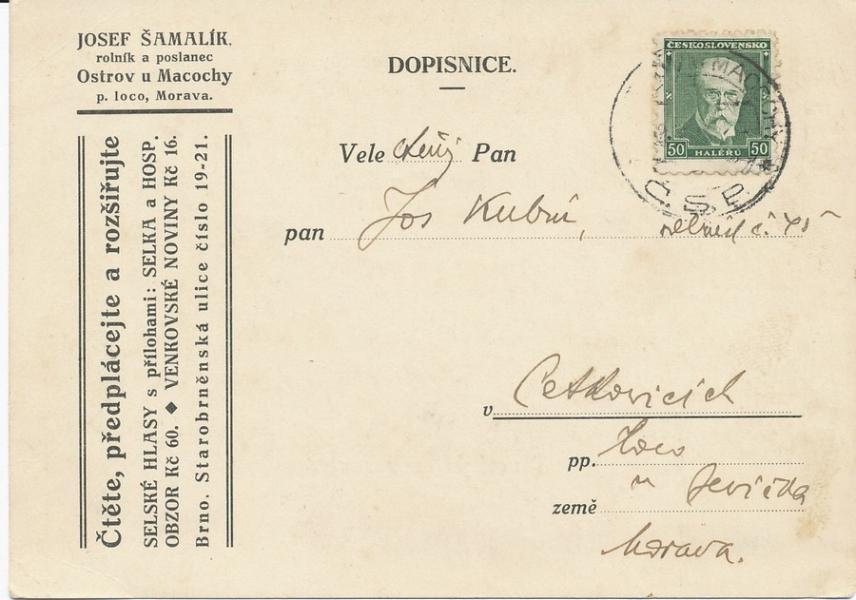 JOSEF ŠAMALÍK,
rolník a poslanec
Ostrov u Macochy
p. loco, Morava.
Čtěte, předplácejte a rozšiřujte
SELSKÉ HLASY s přílohami: SELKA a HOSP.
OBZOR Kč 60. ◆ VENKOVSKÉ NOVINY Kč 16.
Brno. Starobrněnská ulice číslo 19-21.
DOPISNICE.
ČESKOSLOVENSKO
50 HALÉRŮ 50
MACOCHY
Vele ctěný Pan
pan Jos
č.
v Cetkovicích
pp. loco
země u Jevíčka
Morava.